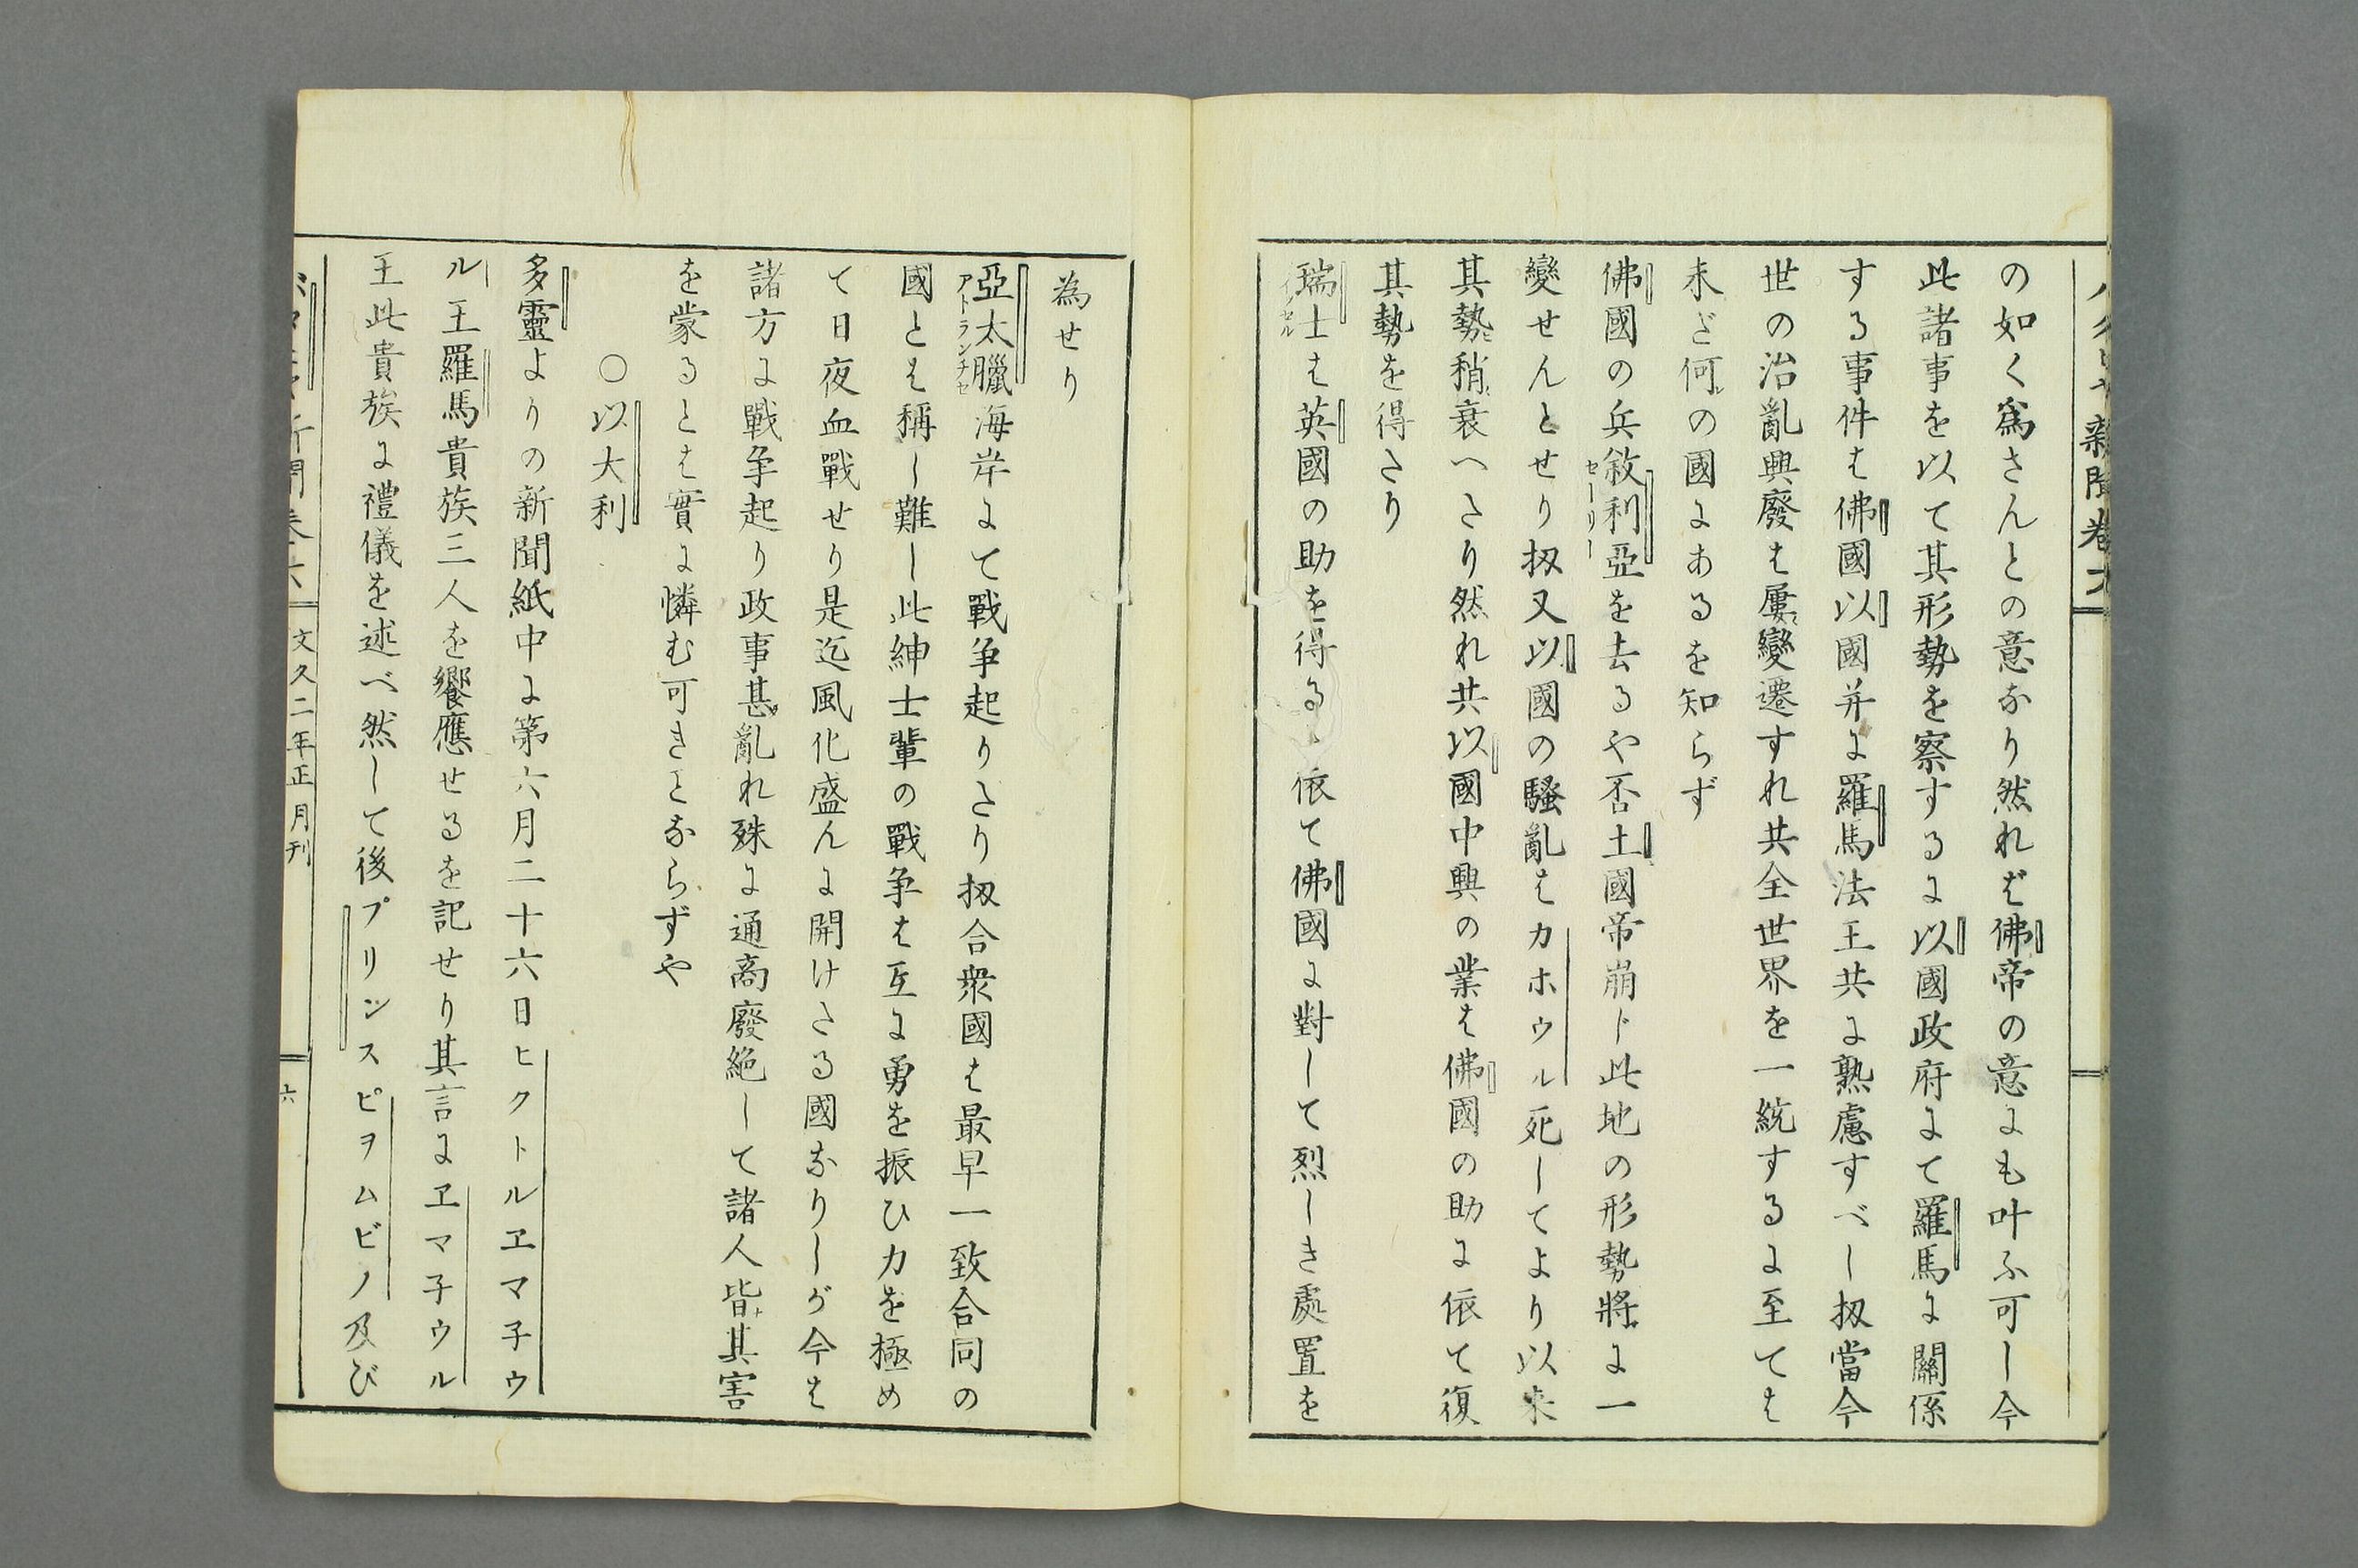 新聞卷六
の如く爲さんとの意なり然れば佛帝の意にも叶ふ可し今
此諸事を以て其形勢を察するに以國政府にて羅馬に關係
する事件は佛國以國并に羅馬法王共に熟慮すべし扨當今
世の治亂興廢は屢變遷すれ共全世界を一統するに至ては
未だ何の國にあるを知らず
佛國の兵敘利亞を去るや否土國帝崩ド此地の形勢將に一
セーリー
變せんとせり扨又以國の騷亂はカホウル死してより以来
其勢稍衰へたり然れ共以國中興の業は佛國の助に依て復
其勢を得たり
瑞士は英國の助を得るに依て佛國に對して烈しき處置を
為せり
亞太臘海岸にて戰争起りたり扨合衆國は最早一致合同の
アトランチセ
國とは稱し難し此紳士輩の戰争は互に勇を振ひ力を極め
て日夜血戰せり是迄風化盛んに開けたる國なりしが今は
諸方に戰争起り政事甚亂れ殊に通商廢絶して諸人皆其害
を蒙るとは實に憐む可きとならずや
〇以大利
多靈よりの新聞紙中に第六月二十六日ヒクトルヱマ子ウ
ル王羅馬貴族三人を饗應せるを記せり其言にヱマ子ウル
王此貴族に禮儀を述べ然して後プリンスピヲムビノ及び
文久二年正月刊
六